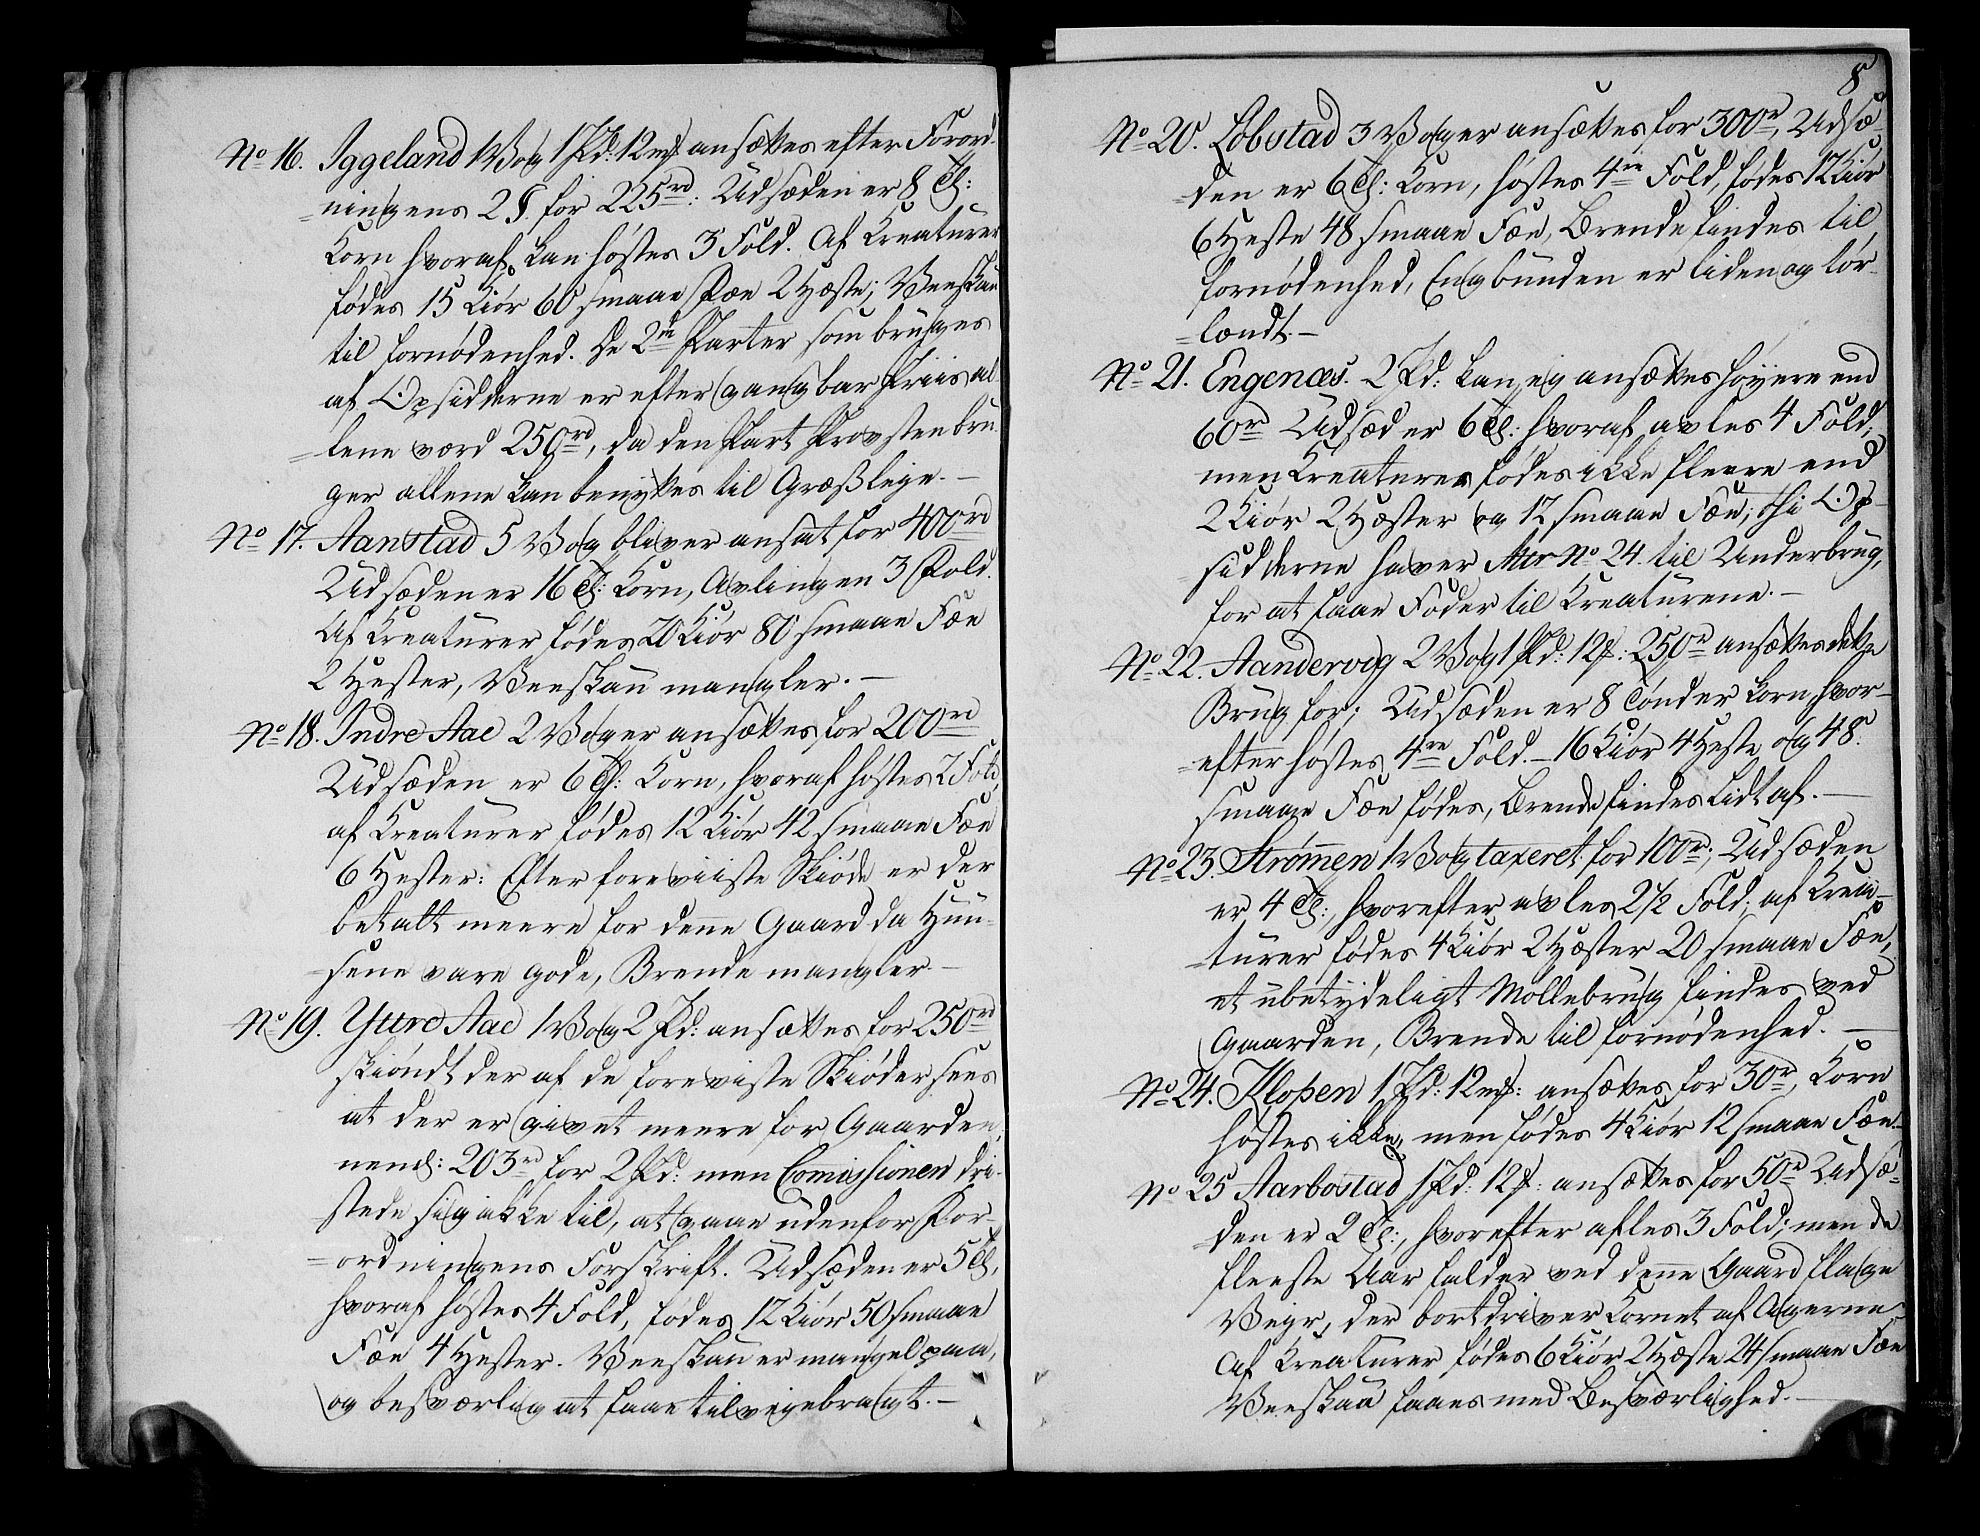 No 16. Iggeland 1 Vog 1 Pd: 12 mk ansættes efter Forord-
ningens 2 §. for 225 rd: Udsæden er 8 Td:
Korn hvoraf kan høstes 3 Fold. Af Kreaturer
fødes 15 Kiør 60 smaae Fæe 2 Heste; Veeskau
til fornødenhed. De 2de Parter som bruges
af Opsidderne er efter gangbar Priis al-
lene værd 250 rd, da den Part Provsten bru-
ger allene kan benyttes til Græsleye. —
No 17. Aanstad 5 Vog bliver ansat for 400 rd
Udsæden er 16 Td: Korn, Avlingen 3 Fold.
Af Kreaturer fødes 20 Kiør 80 smaae Fæe
2 Hester, Veeskau mangler. —
No 18. Indre Aae 2 Voger ansættes for 200 rd
Udsæden er 6 Td: Korn, hvoraf høstes 2 Fold,
af Kreaturer fødes 12 Kiør 42 smaae Fæe
6 Hester: Efter foreviiste Skiøde er der
betalt meere for denne Gaard da Huu-
sene vare gode, Brende mangler. —
No 19. Yttre Aae 1 Vog 2 Pd: ansættes for 250 rd
skiøndt der af de foreviste Skiøder sees
at der er givet meere for Gaarden,
nemL: 203 rd for 2 Pd: men Comissionen dri-
stede sig ikke til, at gaae udenfor For-
ordningens Forskrift. Udsæden er 5 Td,
hvoraf høstes 4 Fold, fødes 12 Kiør 50 smaae
Fæe 4 Hester. Veeskau er mangel paa,
og besværlig at faae tilvejebragt. —
8
No 20. Lobstad 3 Voger ansættes for 300 r, Udsæ-
den er 6 Td: Korn, høstes 4re Fold, fødes 12 Kiør
6 Heste 48 smaae Fæe, Brende findes til
fornødenhed, Engbunden er liden og tør-
lændt. —
No 21. Engenæs. 2 Pd: kan ej ansættes høyere end
60 r Udsæd er 6 Td: hvoraf avles 4 Fold,
men Kreaturer fødes ikke fleere end
2 Kiør 2 Hæster og 12 smaae Fæe; thi Op-
sidderne haver Mtr No 24. til Underbrug,
for at faae Foder til Kreaturene. —
No 22. Aandervog 2 Vog 1 Pd: 12 : 250 r ansættes dette
Brug for; Udsæden er 8 Tønder Korn, hvor-
efter høstes 4re Fold. — 16 Kiør 4 Heste og 48
smaae Fæe fødes, Brende findes Lidt af. —
No 23. Strømen 1 Vog taxeret for 100 r; Udsæden
er 4 Td:, hvorefter avles 2½ Fold, af Krea-
turer fødes 4 Kiør 2 Hæster 20 smaae Fæe,
et ubetydeligt Møllebrug findes ved
Gaarden, Brende til fornødenhed. —
No 24. Kloþen 1 Pd: 12 mk: ansættes for 30 r, Korn
høstes ikke, men fødes 4 Kiør 12 smaae Fæe.
No 25 Aarbostad 1 Pd: 12 : ansættes for 50 r Udsæ-
den er 2 Td:, hvorefter afles 3 Fold; men de
fleeste Aar falder ved denne Gaard flage
Vejr, der bortdriver Kornet af Agerne
Af Kreaturer fødes 6 Kiør 2 Hæste 24 smaae Fæe
Veeskau faaes med Besværlighed. —